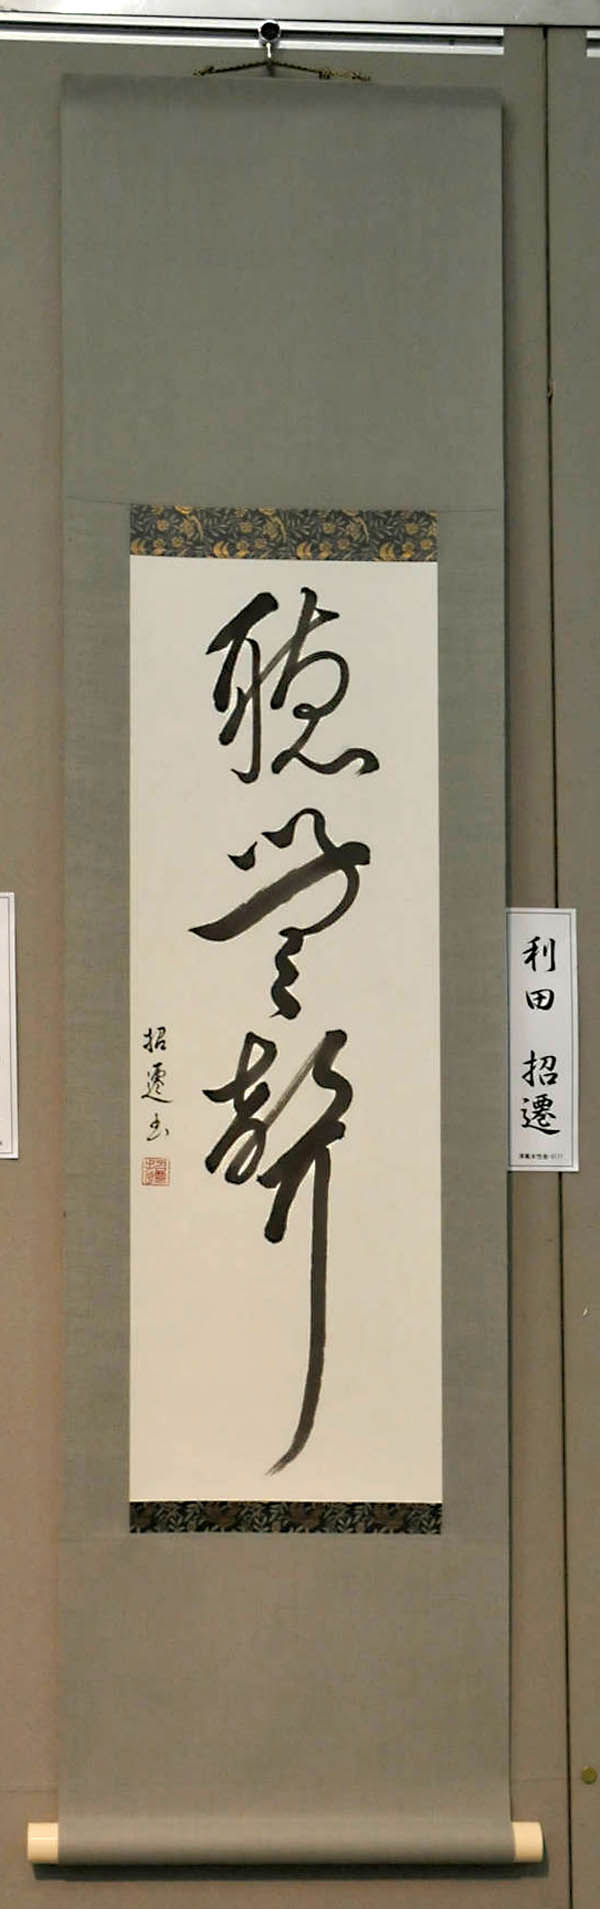 聴雪聲
招遷書
利田 招遷